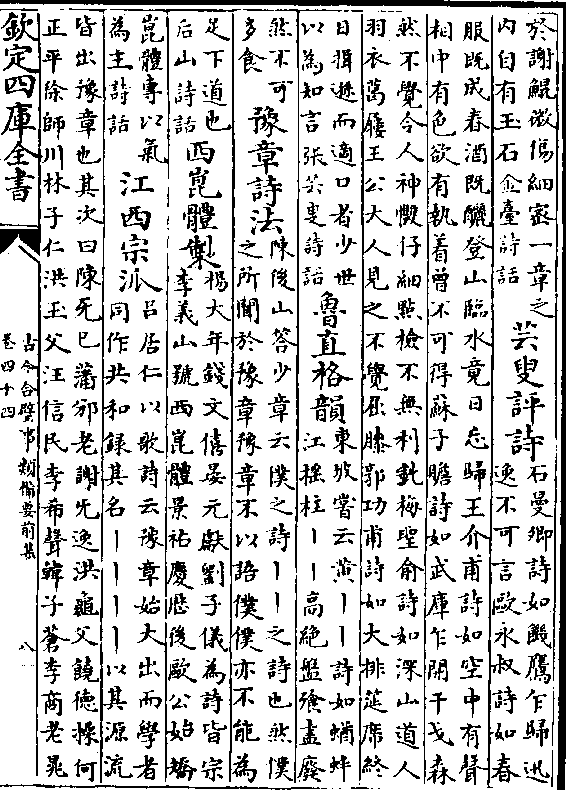 於謝鯤微傷細密一章之
内自有玉石金臺詩話
芸叟評詩
石曼卿詩如饑鷹乍歸迅
逸不可言歐永叔詩如春
服既成春酒既釃登山臨水竟日忘歸王介甫詩如空中有聲
相中有色欲有執着曾不可得蘇子瞻詩如武庫乍開干戈森
然不覺令人神慄仔細點檢不無利鈍梅聖俞詩如深山道人
羽衣葛屨王公大人見之不覺屈膝郭功甫詩如大排筵席終
日揖遜而適口者少世
以為如言張芸叟詩話
魯直格韻
東坡嘗云黄丨丨詩如蝤蛑
江瑶柱丨丨高絶盤飱盡廢
然不可
多食
豫章詩法
陳後山答少章云僕之詩丨丨之詩也然僕
之所聞於豫章豫章不以語僕僕亦不能為
足下道也
后山詩話
西崑體製
楊大年錢文僖晏元獻劉子儀為詩皆宗
李義山號西崑體景祐慶歴後歐公始矯
崑體專以氣
為主詩話
江西宗派
吕居仁以歌詩云豫章始大出而學者
同作共和録其名丨丨丨丨以其源流
皆出豫章也其次曰陳无已潘邠老謝无逸洪龜父饒德操何
正平徐師川林子仁洪玉父汪信民李希聲韓子蒼李商老晁
欽定四庫全書
古今合璧事類備要前集
卷四十四
八